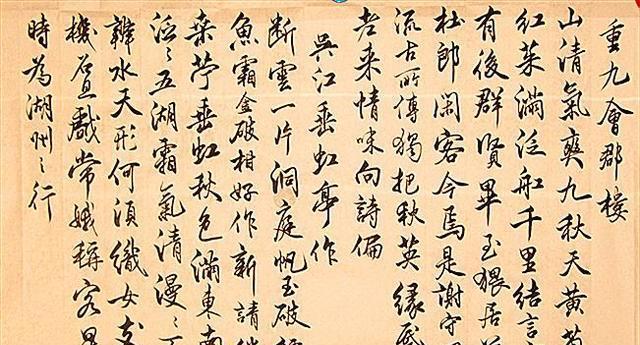 重九會郡樓
山清氣爽九秋天黃菊
紅茱滿泛船千里結言
有後群賢畢至猥居前
杜郎閑客今焉是謝守
流古所傳獨把秋英緣底
老来情味向詩偏
吳江垂虹亭作
断雲一片洞庭帆玉破鱸
魚霜金破柑好作新詩繼
桑苧垂虹秋色滿東南
泛〻五湖霜氣清漫〻
辨水天形何須織女支
機石且戲常娥稱客星
時為湖州之行